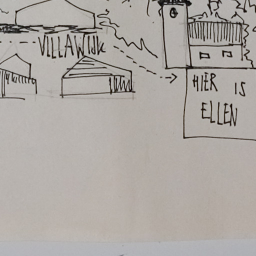 VILLAWIJK
HIER IS
ELLEN